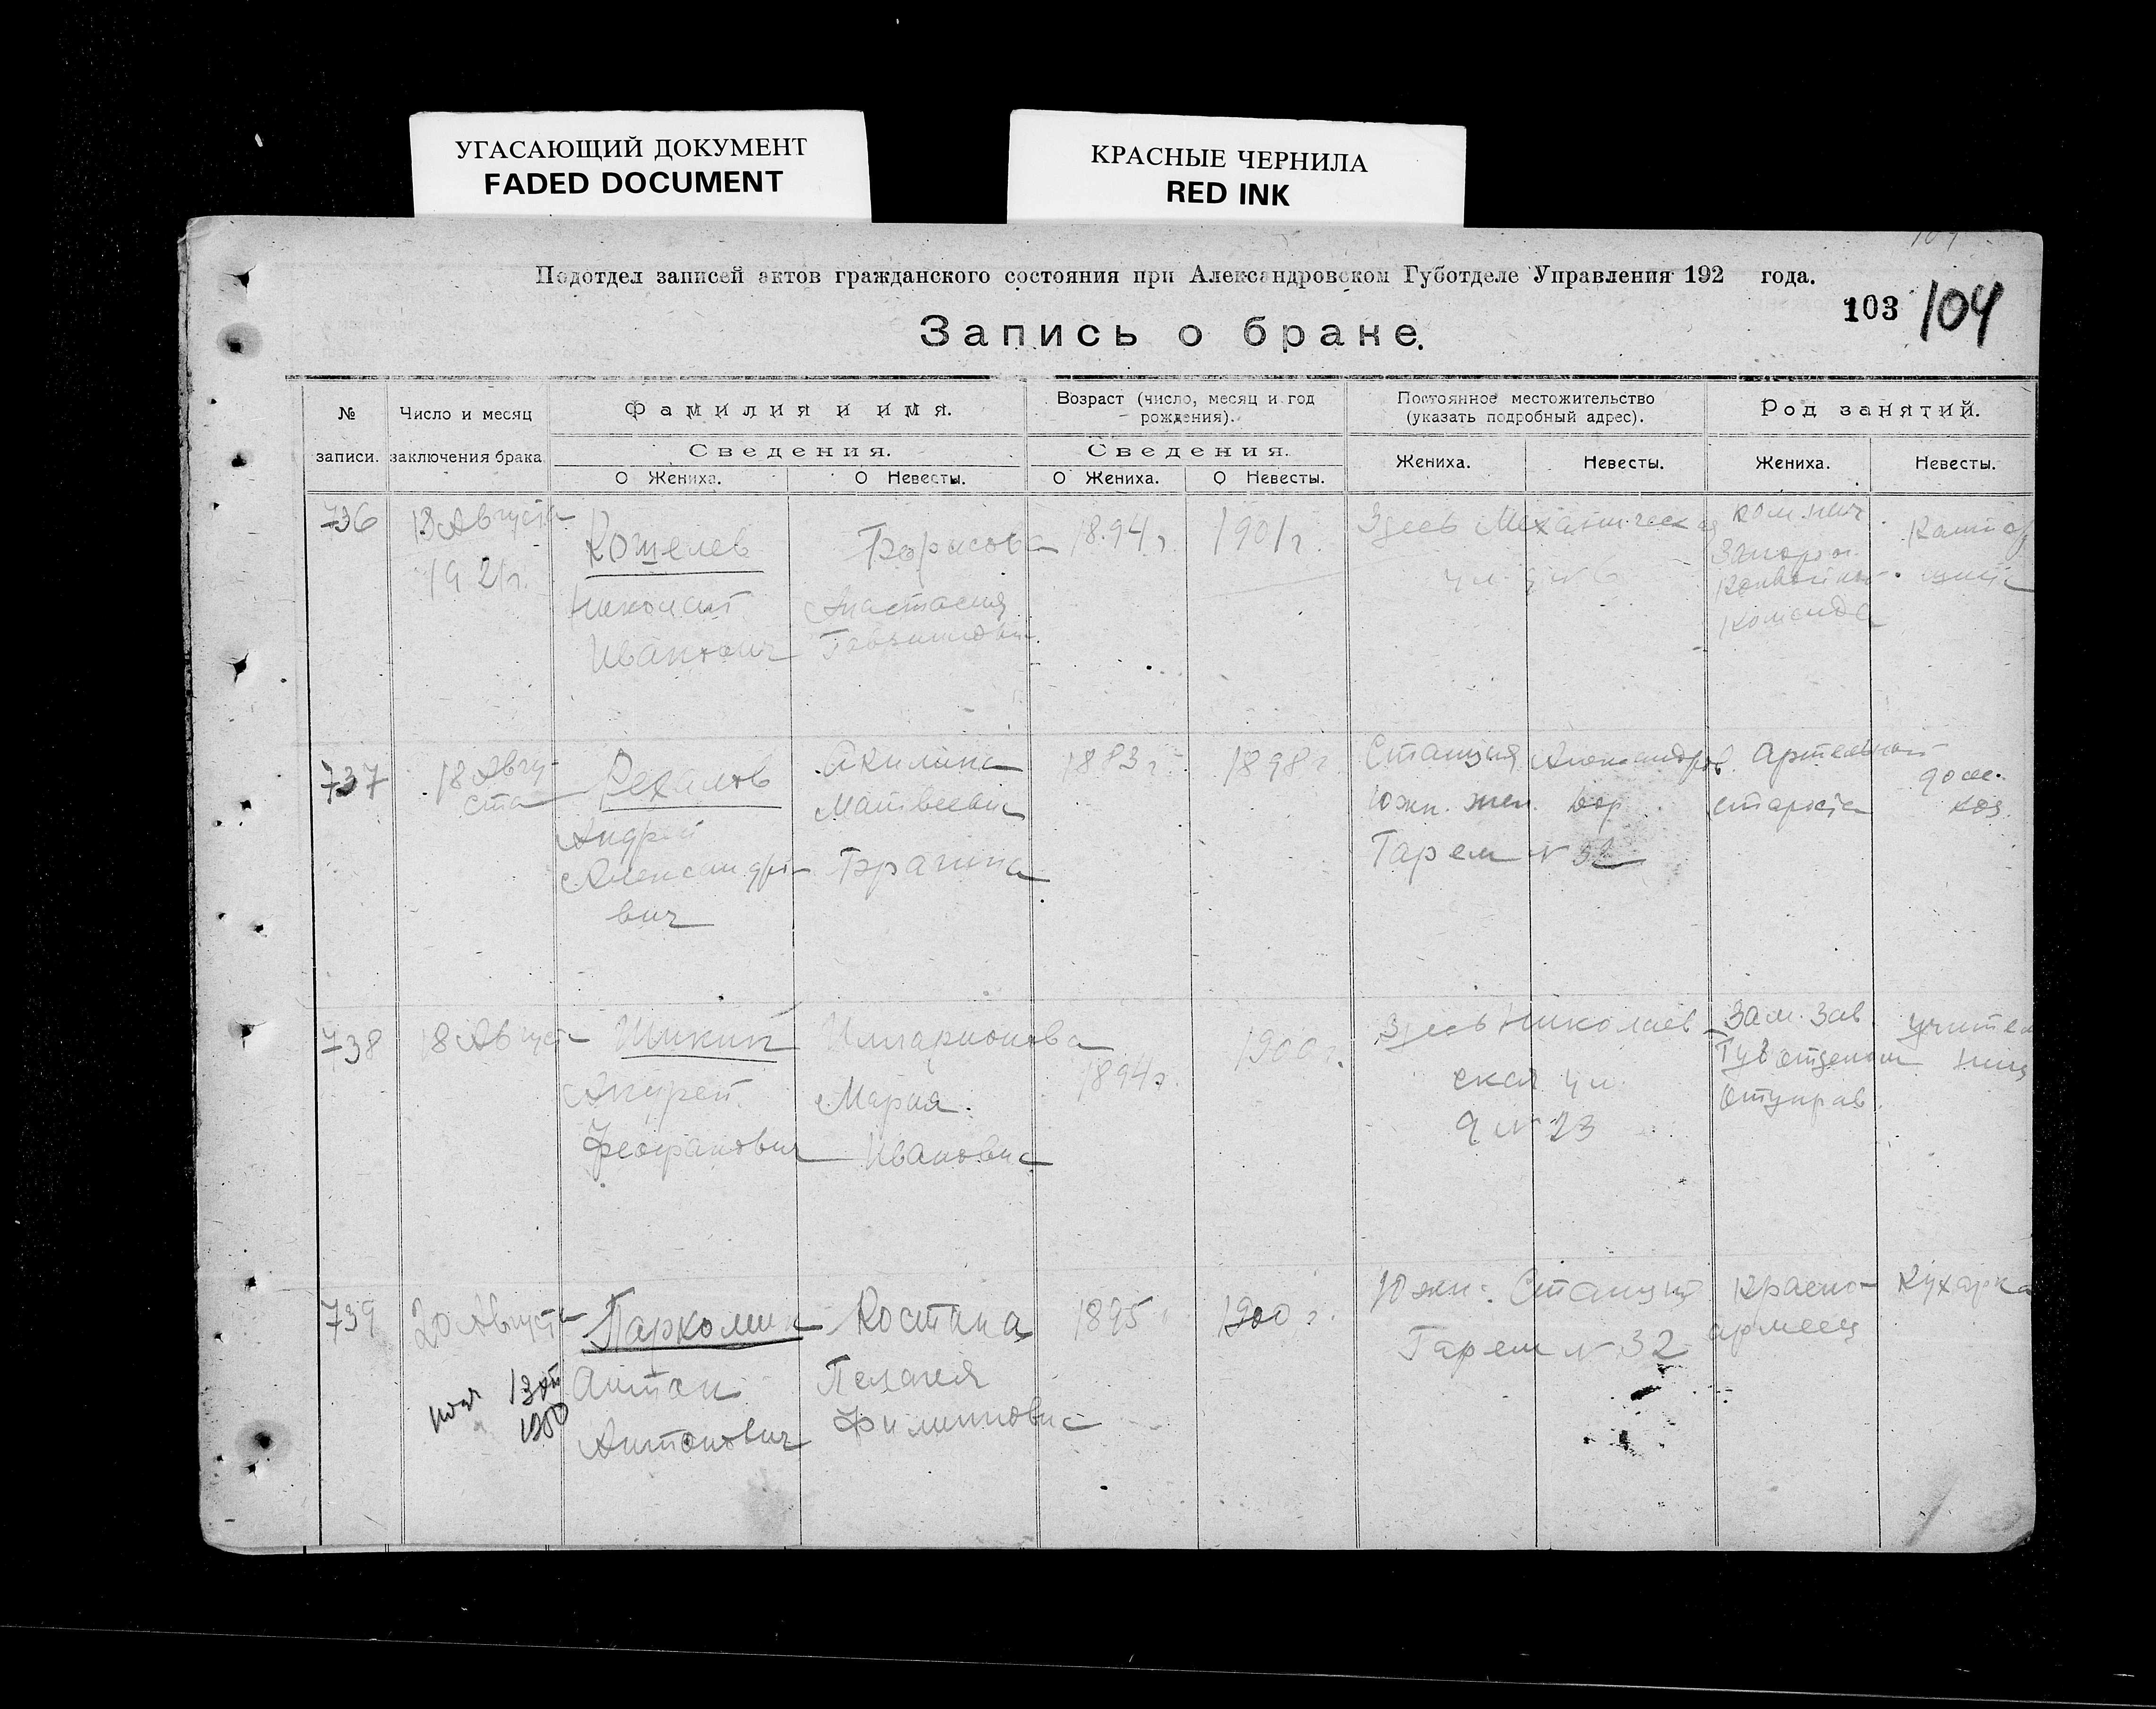 УГАСАЮЩИЙ ДОКУМЕНТ
FADED DOCUMENT
КРАСНЫЕ ЧЕРНИЛА
RED INK
Подотдел записей актов гражданского состояния при Александровском Губотделе Управления 192 года.
103 104
Запись о браке.
№ записи.
Число и месяц заключения брака
Фамилия и имя.
Сведения.
О Жениха.
О Невесты.
Возраст (число, месяц и год
рождения).
Сведения.
О Жениха.
О Невесты.
Постоянное местожительство
(указать подробный адрес).
Жениха.
Невесты.
Род занятий.
Жениха.
Невесты.
736
18 Августа
1921г.
Кошелев
Николай
Иванович
Борисова
Анастасия
1894г.
1901г.
Здесь Механическая
ул. д № 6
команда
737
18 Авгу
ста
Андрей
Александро
вич
Акилина
Матвеевна
Брагина
1883г.
1898г.
Станция Александров.
Южн. жел. дор.
Гарем № 32
Артельный
староста
дом.
хоз.
738
18 Августа
Шикин
Андрей
Феофанович
Илларионова
Мария
Ивановна
1894г.
1900г.
Здесь Николаев
ская ул.
д № 23
Зам. Зав
Отуправ.
учитель
ница
739
20 Августа
Антон
Антонович
Костина
Пелагея
Филипповна
1895г.
1900г.
Южн. Станция
Гарем № 32
Красно
армеец
Кухарка